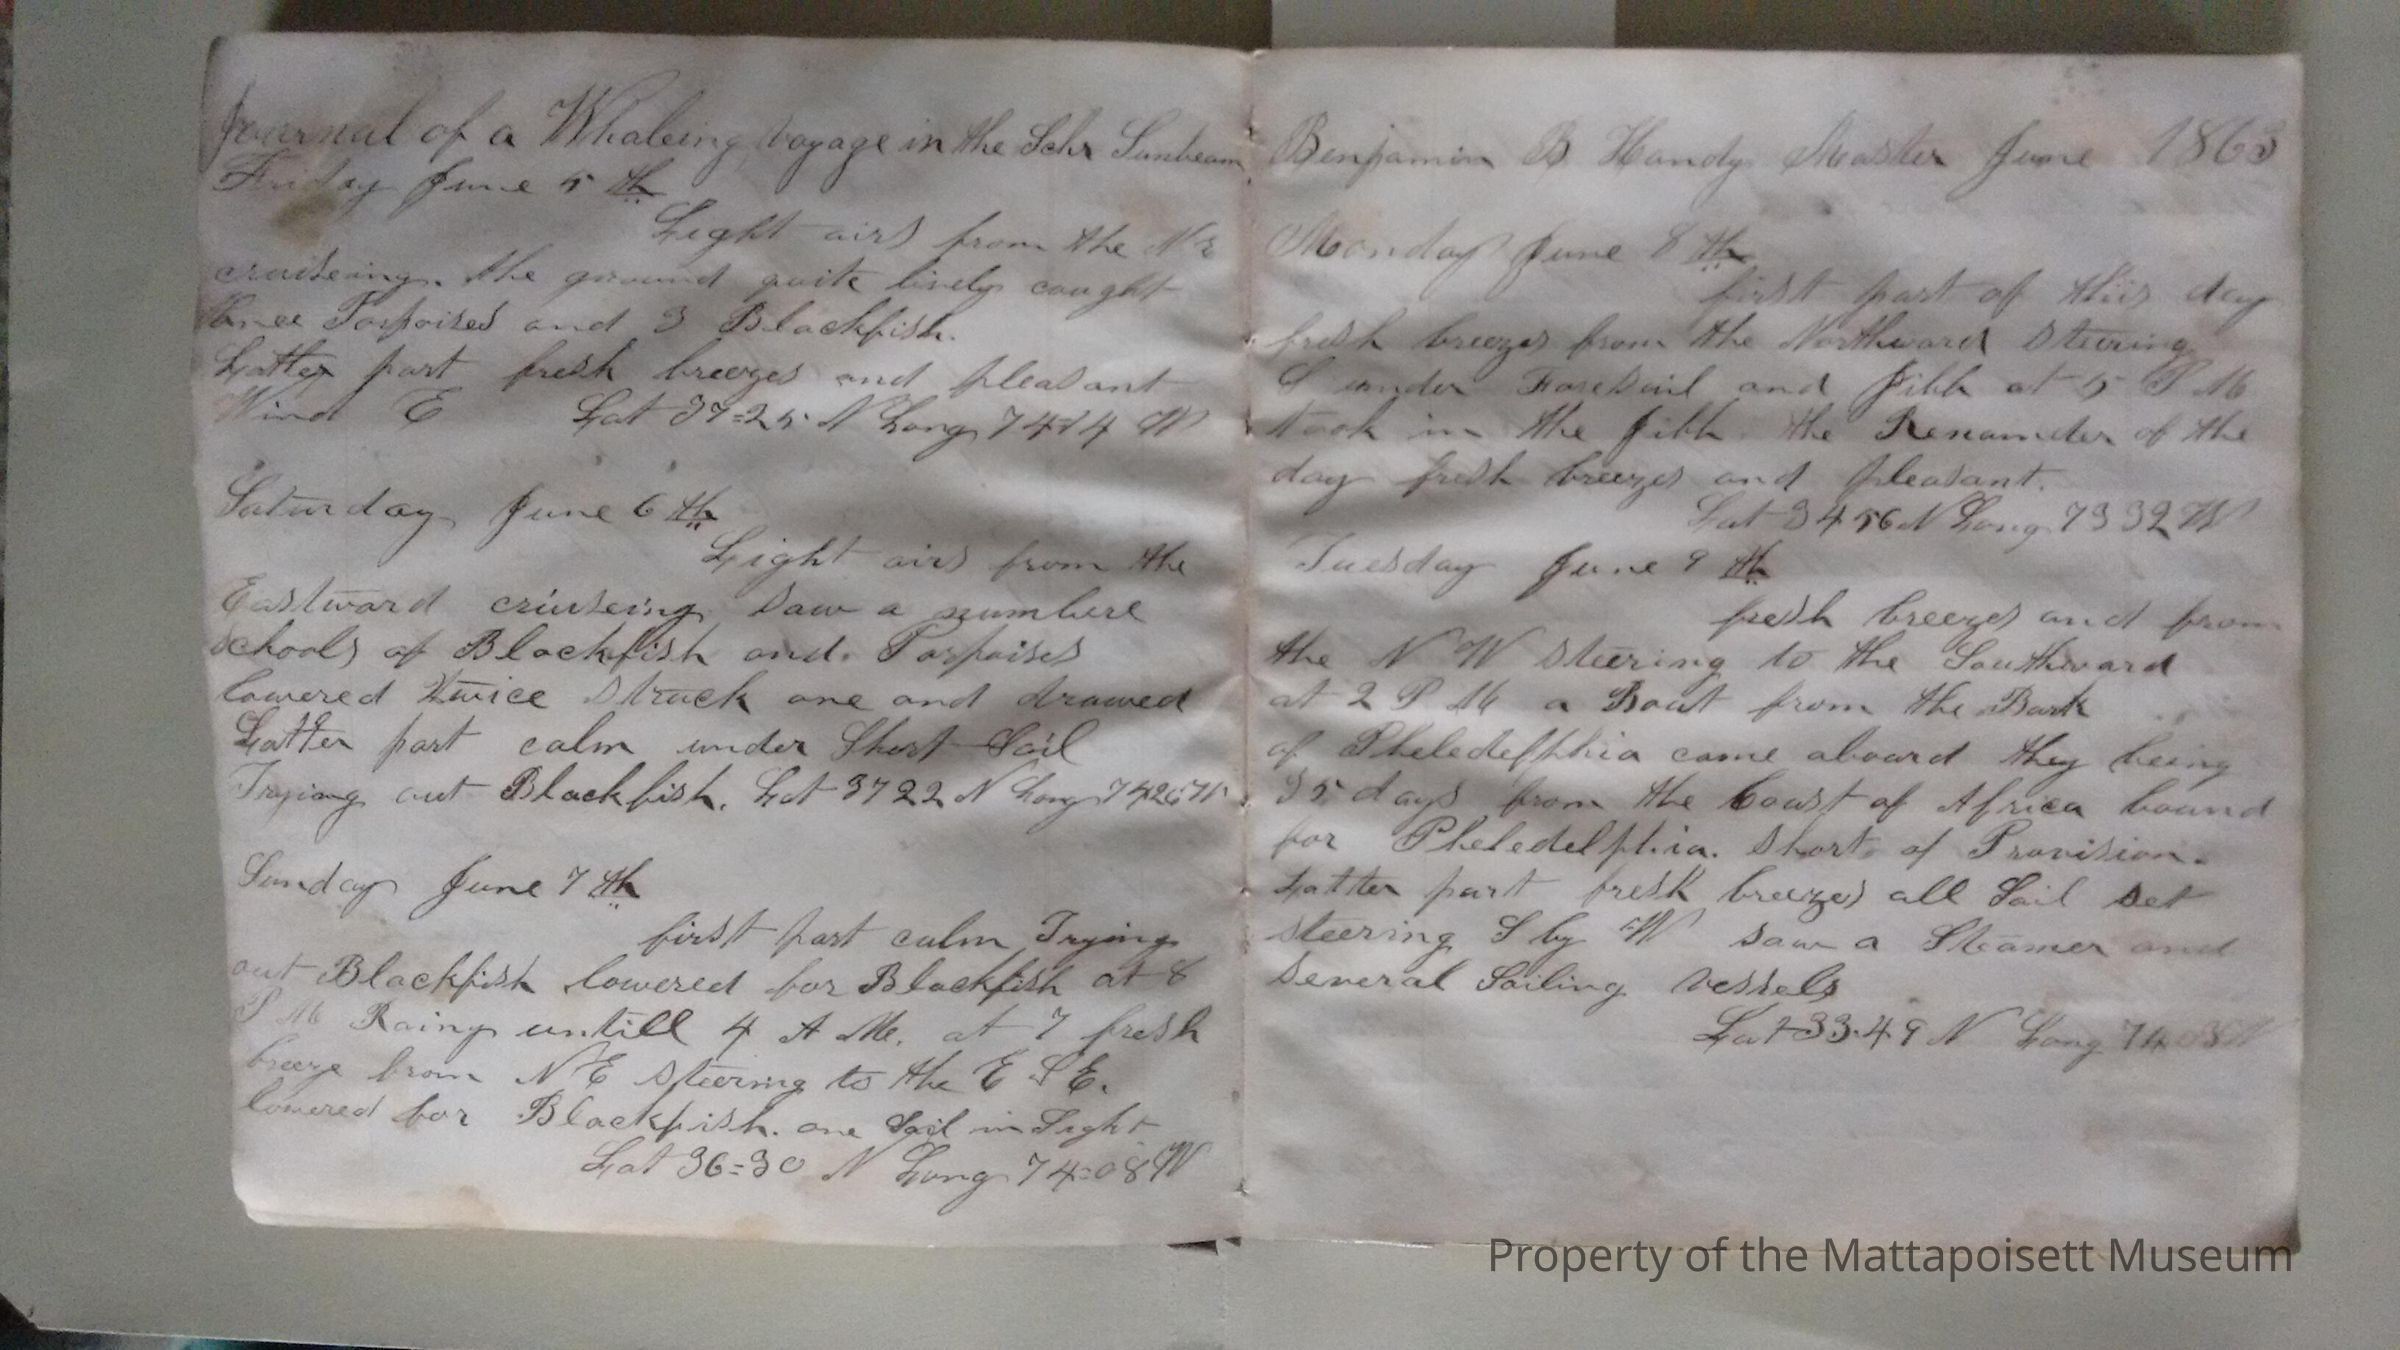 Journal of a Whaleing voyage in the Schr Sunbeam
Friday June 5th
Light airs from the N E
cruiseing. the ground quite lively caught
Porpoises and 3 Blackfish.
Latter part fresh breezes and pleasant
Wind E Lat 37=25 N Long 74 14 W
Saturday June 6th
Light airs from the
Eastward cruiseing saw a numbere
schools of Blackfish and. Porpoises
lowered twice struck one and drawed
Latter part calm under Short Sail
Trying out Blackfish. Lat 37 22 N Long
Sunday June 7th
first part calm Trying
out Blackfish lowered for Blackfish at 8
P M Rainy untill 4 A M. at 7 fresh
breeze from N E steering to the E S E.
lowered for Blackfish. one Sail in Sight
Lat 36=30 N Long 74=08 W
Benjamin B Handy Master June 1863
Monday June 8th
first part of this day
fresh breezes from the Northward steering
S under Foresail and Jibb at 5 P M
took in the Jibb. the Renamder of the
day fresh breezes and pleasant.
Lat 34 56 N Long 73 32 W
Tuesday June 9th
fresh breezes and from
the N W steering to the Southward
at 2 P M a Boat from the Bark
of Pheledelphia came aboard they being
35 days from the Coast of Africa bound
for Pheledelphia. short of Provision.
Latter part fresh breezes all Sail set
steering S by W saw a Steamer and
several Sailing vessels
Lat 33.49 N Long 74
Property of the Mattapoisett Museum